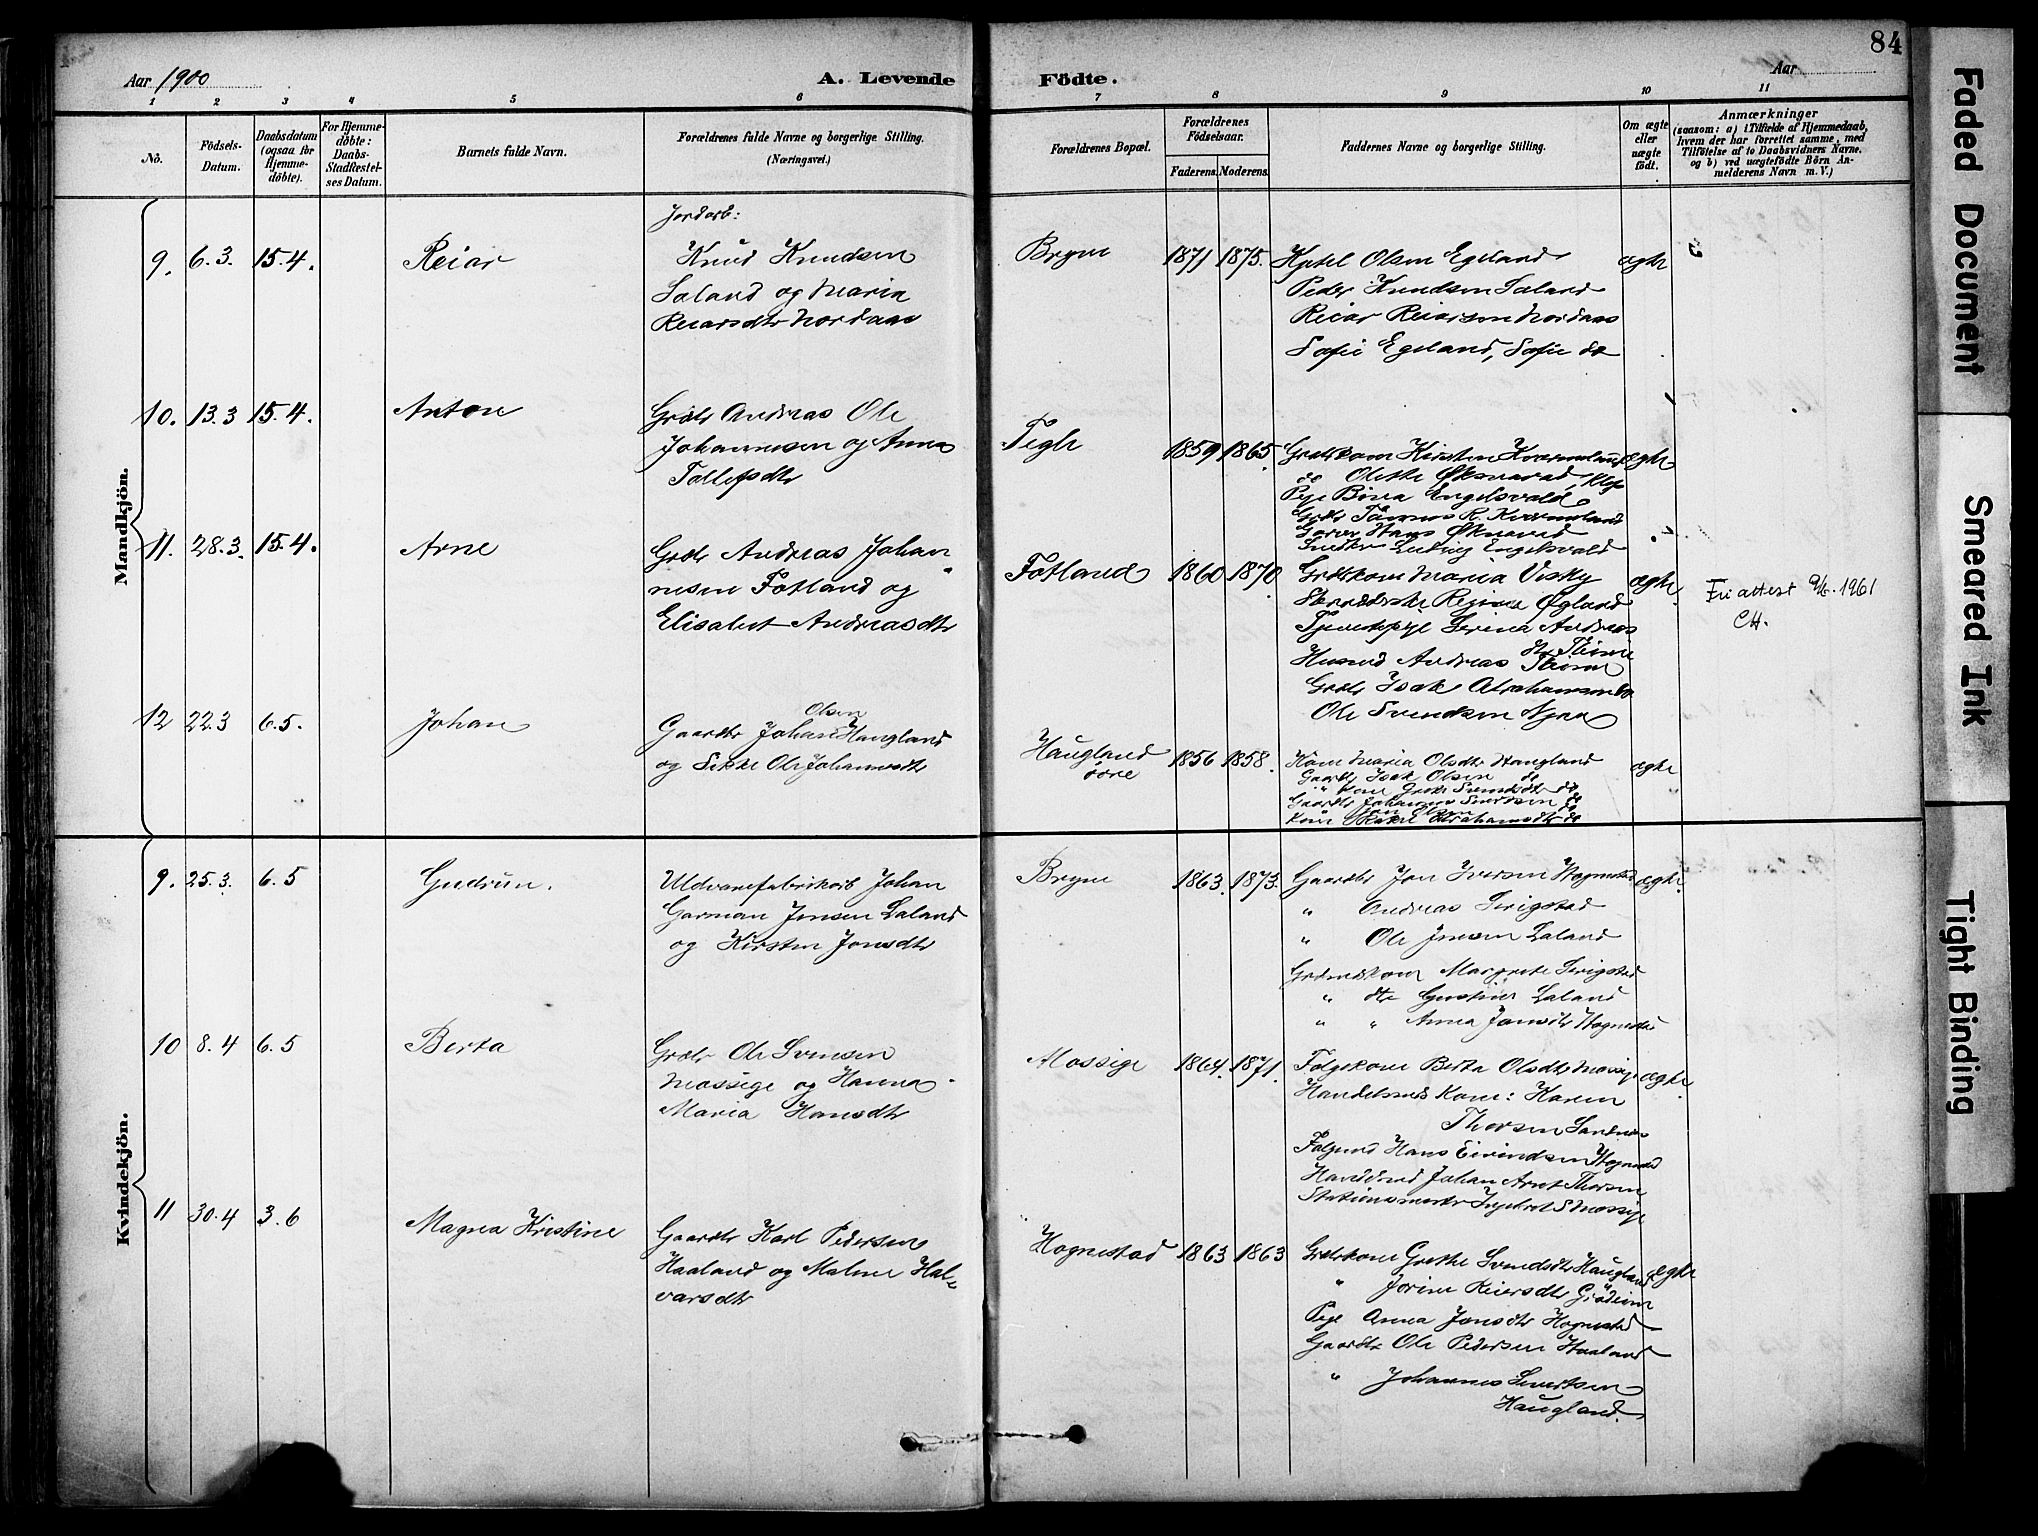 84
Aar 1900
A. Levende Födte.
Aar
1 2 3 4 5 6 7 8 9 10 11
No.
Födsels-
Datum.
Daabsdatum
(ogsaa for
Hjemme-
döbte).
For Hjemme-
döbte:
Daabs-
Stadfæstel-
ses Datum.
Barnets fulde Navn.
Forældrenes fulde Navne og borgerlige Stilling.
(Næringsvei.)
Forældrenes Bopæl.
Forældrenes
Födselsaar.
Faderens. Moderens.
Faddernes Navne og borgerlige Stilling.
Om ægte
eller
uægte
födt.
Anmærkninger
(saasom: a) i Tilfælde af Hjemmedaab,
hvem der har forrettet samme, med
Tilföielse af to Daabsvidners Navne,
og b) ved uægtefödte Börn An-
melderens Navn m. V.)
Mandkjön.
9. 6.3. 15.4. Reiar
Jordarb:
Knud Knudsen
Laland og Maria
Reiarsdtr Nordaas
Bryne 1871 1875.
Kjetel Olsen Egeland
Peder Knudsen Laland
Reiar Reiarsen Nordaas
Sofie Egeland, Sofie do
ægte
10. 13.3 15.4. Anton
Grdbr Andreas Ole
Johannesen og Anna
Tollefsdtr
Tegle 1859 1865.
Grdbrkone Kirsten Kverneland
do Olette Øksnavad, Klep
Pige Berta Engelsvold
Grdbr Tønnes R. Kverneland
Hans Øksnavad
Snedker Ludvig Engelsvold
ægte
11. 28.3. 15.4. Arne
Grdbr Andreas Johan
nesen Fotland og
Elisabet Andreasdtr
Fotland 1860 1870.
Grdbrkone Maria Vesky
Regine Øgland
Tjenestepige Serina Andreas
Husmd Andreas Thime
Grdbr Isak Abrahamsen do
Ole Svendsen Njaa
ægte.
Fri attest 9/6. 1961
CH.
12 22.3 6.5. Johan
Gaardbr Johan Olsen Haugland
og Sikke Ole Johannsdtr
Haugland
øvre
1856 1858.
Kone Maria Olsdtr Haugland
Gaardbr Isak Olsen do
" Kone Grete Svendsdtr do
Gaardbr Johannes Sivertsen do
Kone Abrahamsdtr do
ægte
Kvindekjön.
9. 25.3. 6.5 Gudrun.
Uldvarefabrikarb Johan
Garman Jensen Laland
og Kirsten Jonsdtr
Bryne 1863. 1873.
Gaardbr Jon Iversen Hognestad
" Andreas Serigstad
" Ole Jensen Laland
Grdmdskone Margrete Serigstad
" dtr Gustine Laland
" " Anna Jonsdtr Hognestad
ægte.
10 8.4 6.5 Berta
Grdbr Ole Svensen
Mossige og Hanna
Maria Hansdtr
Mossige 1864. 1871.
Folgekone Berta Olsdtr Mossige
Handelsmds Kone: Karen
Thorsen Sandnes
Folgemd Hans Eivindsen Hognestad
Handelsmd Johan Arnt Thorsen
Stationsmester Ingebret S Mossige
ægte.
11 30.4 3.6 Magna Kristine
Gaardbr Karl Pedersen
Haaland og Malene Hal-
varsdtr
Hognestad 1863 1863
Grdbrkone Grethe Svendsdtr Haugland
" Jorine Reiersdtr Grødeim
Pige Anna Jonsdtr Hognestad
Gaardbr Ole Pedersen Haaland
" Johannes Sivertsen
Haugland.
ægte
Faded Document
Smeared Ink
Tight Binding